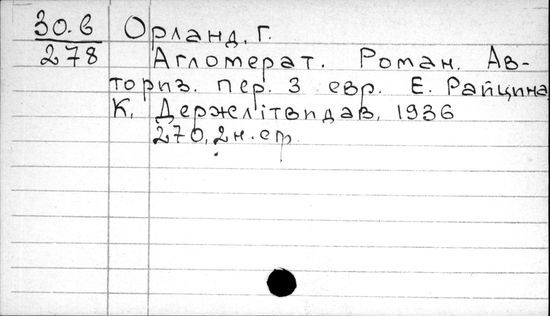 30.в Орланд, Г.
278 Агломерат. Роман. Ав-
ториз. пер. з евр. Е. Райцина
К. Держлітвидав, 1936
270, 2 н. ст.